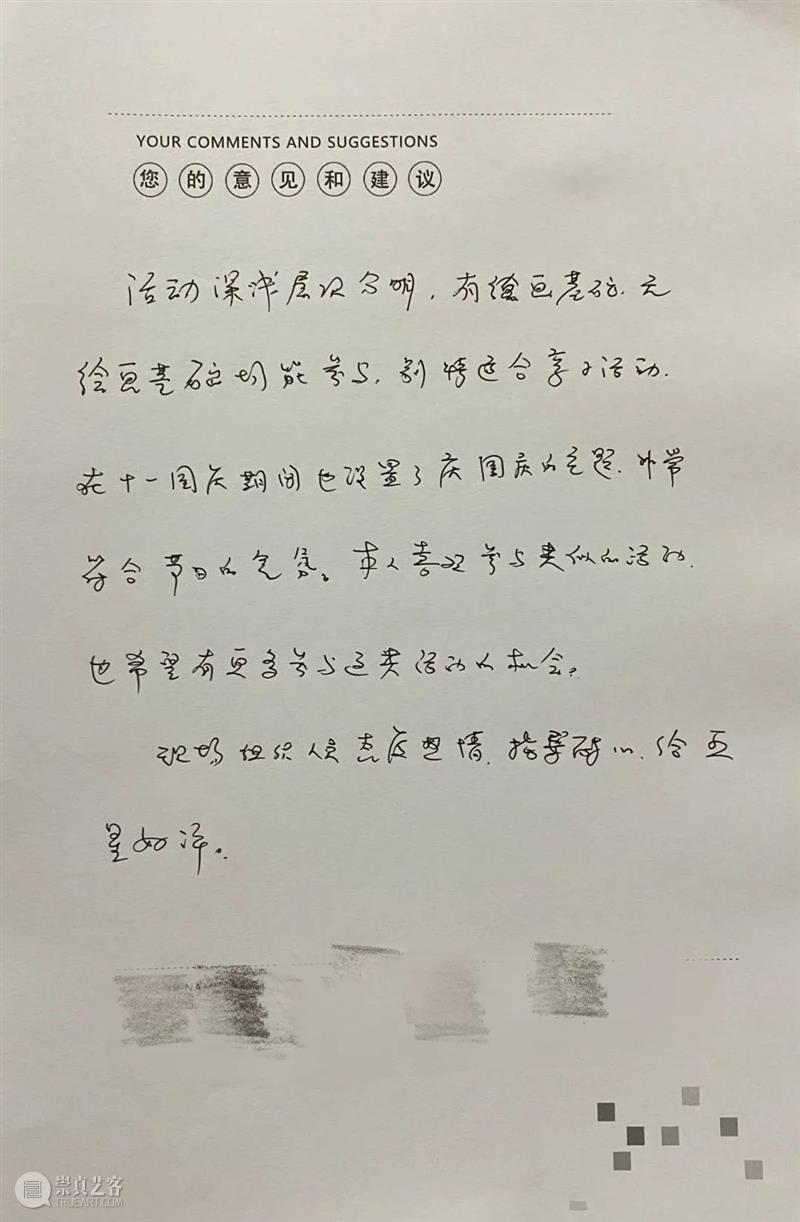 YOUR COMMENTS AND SUGGESTIONS
您的意见和建议
活动深浅层次分明，有绘画基础、无
绘画基础均能参与，特适合亲子活动.
在十一国庆期间也设置了庆国庆的主题、非常
符合节日的气氛。本人喜欢参与类似的活动.
也希望有更多参与这类活动的机会。
现场组织人员态度热情、指导耐心、给五
星好评。
NAME
崇真艺客
TRUEART.COM